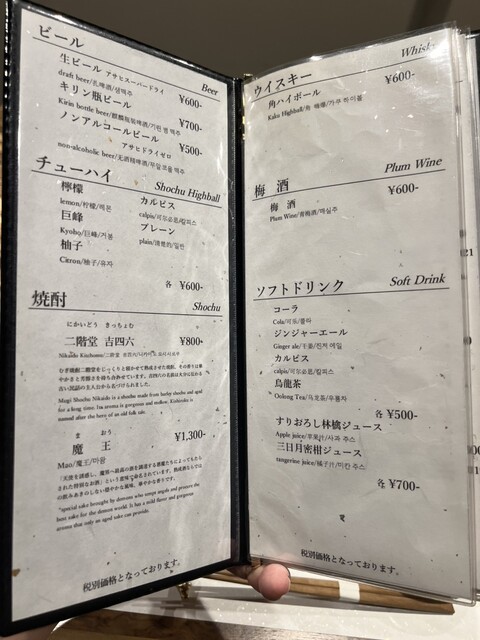 ビール
Beer
生ビール アサヒスーパードライ
draft beer/扎啤酒/생맥주
¥600-
キリン瓶ビール
Kirin bottle beer/麒麟瓶装啤酒/기린 병 맥주
¥700-
ノンアルコールビール
アサヒドライゼロ
¥500-
non-alcoholic beer/无酒精啤酒/무알코올 맥주
チューハイ
Shochu Highball
檸檬
lemon/柠檬/레몬
カルピス
calpis/可尔必思/칼피스
巨峰
Kyoho/巨峰/거봉
プレーン
plain/清爽的/일반
柚子
Citron/柚子/유자
各 ¥600-
焼酎
Shochu
にかいどう きっちょむ
二階堂 吉四六
¥800-
Nikaido Kitchomu/二階堂 吉四六/
むぎ焼酎二階堂をじっくりと寝かせて熟成させた焼酎。その香りは華
やかさと芳醇さを持ち合わせています。吉四六の名前は大分に伝わる
古い民話の主人公から名づけられました。
Mugi Shochu Nikaido is a shochu made from barley shochu and aged
for a long time. Its aroma is gorgeous and mellow. Kichomu is
named after the hero of an old folk tale.
ま おう
魔 王
¥1,300-
Mao/魔王/마왕
「天使を誘惑し、魔界へ最高の酒を調達する悪魔たちによってもたら
された特別なお酒」という意味で命名されています。熟成酒ならでは
の飲みあきのしない穏やかな風味、華やかな香りです。
"special sake brought by demons who tempt angels and procure the
best sake for the demon world. It has a mild flavor and gorgeous
aroma that only an aged sake can provide.
税別価格となっております。
ウイスキー
Whisky
角ハイボール
¥600-
Kaku Highball/角 嗨棒/가쿠 하이볼
梅 酒
Plum Wine
梅 酒
¥600-
Plum Wine/青梅酒/매실주
ソフトドリンク
Soft Drink
コーラ
Cola/可乐/콜라
ジンジャーエール
Ginger ale/干姜/진저 에일
カルピス
calpis/可尔必思/칼피스
烏龍茶
Oolong Tea/乌龙茶/우롱차
各 ¥500-
すりおろし林檎ジュース
Apple juice/苹果汁/사과 주스
三日月密柑ジュース
tangerine juice/橘子汁/미칸 주스
各 ¥700-
税別価格となっております。